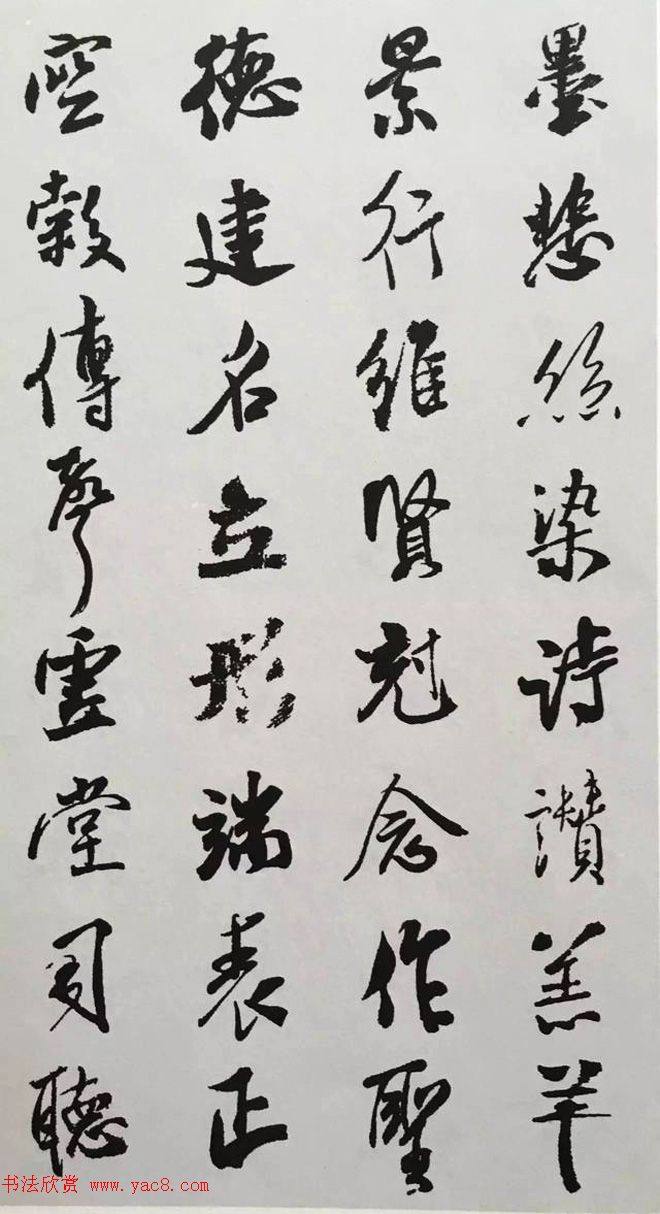 墨悲絲染詩讃羔羊
景行維賢尅念作聖
德建名立形端表正
空榖傳聲虚堂司聽
书法欣赏 www.yac8.com